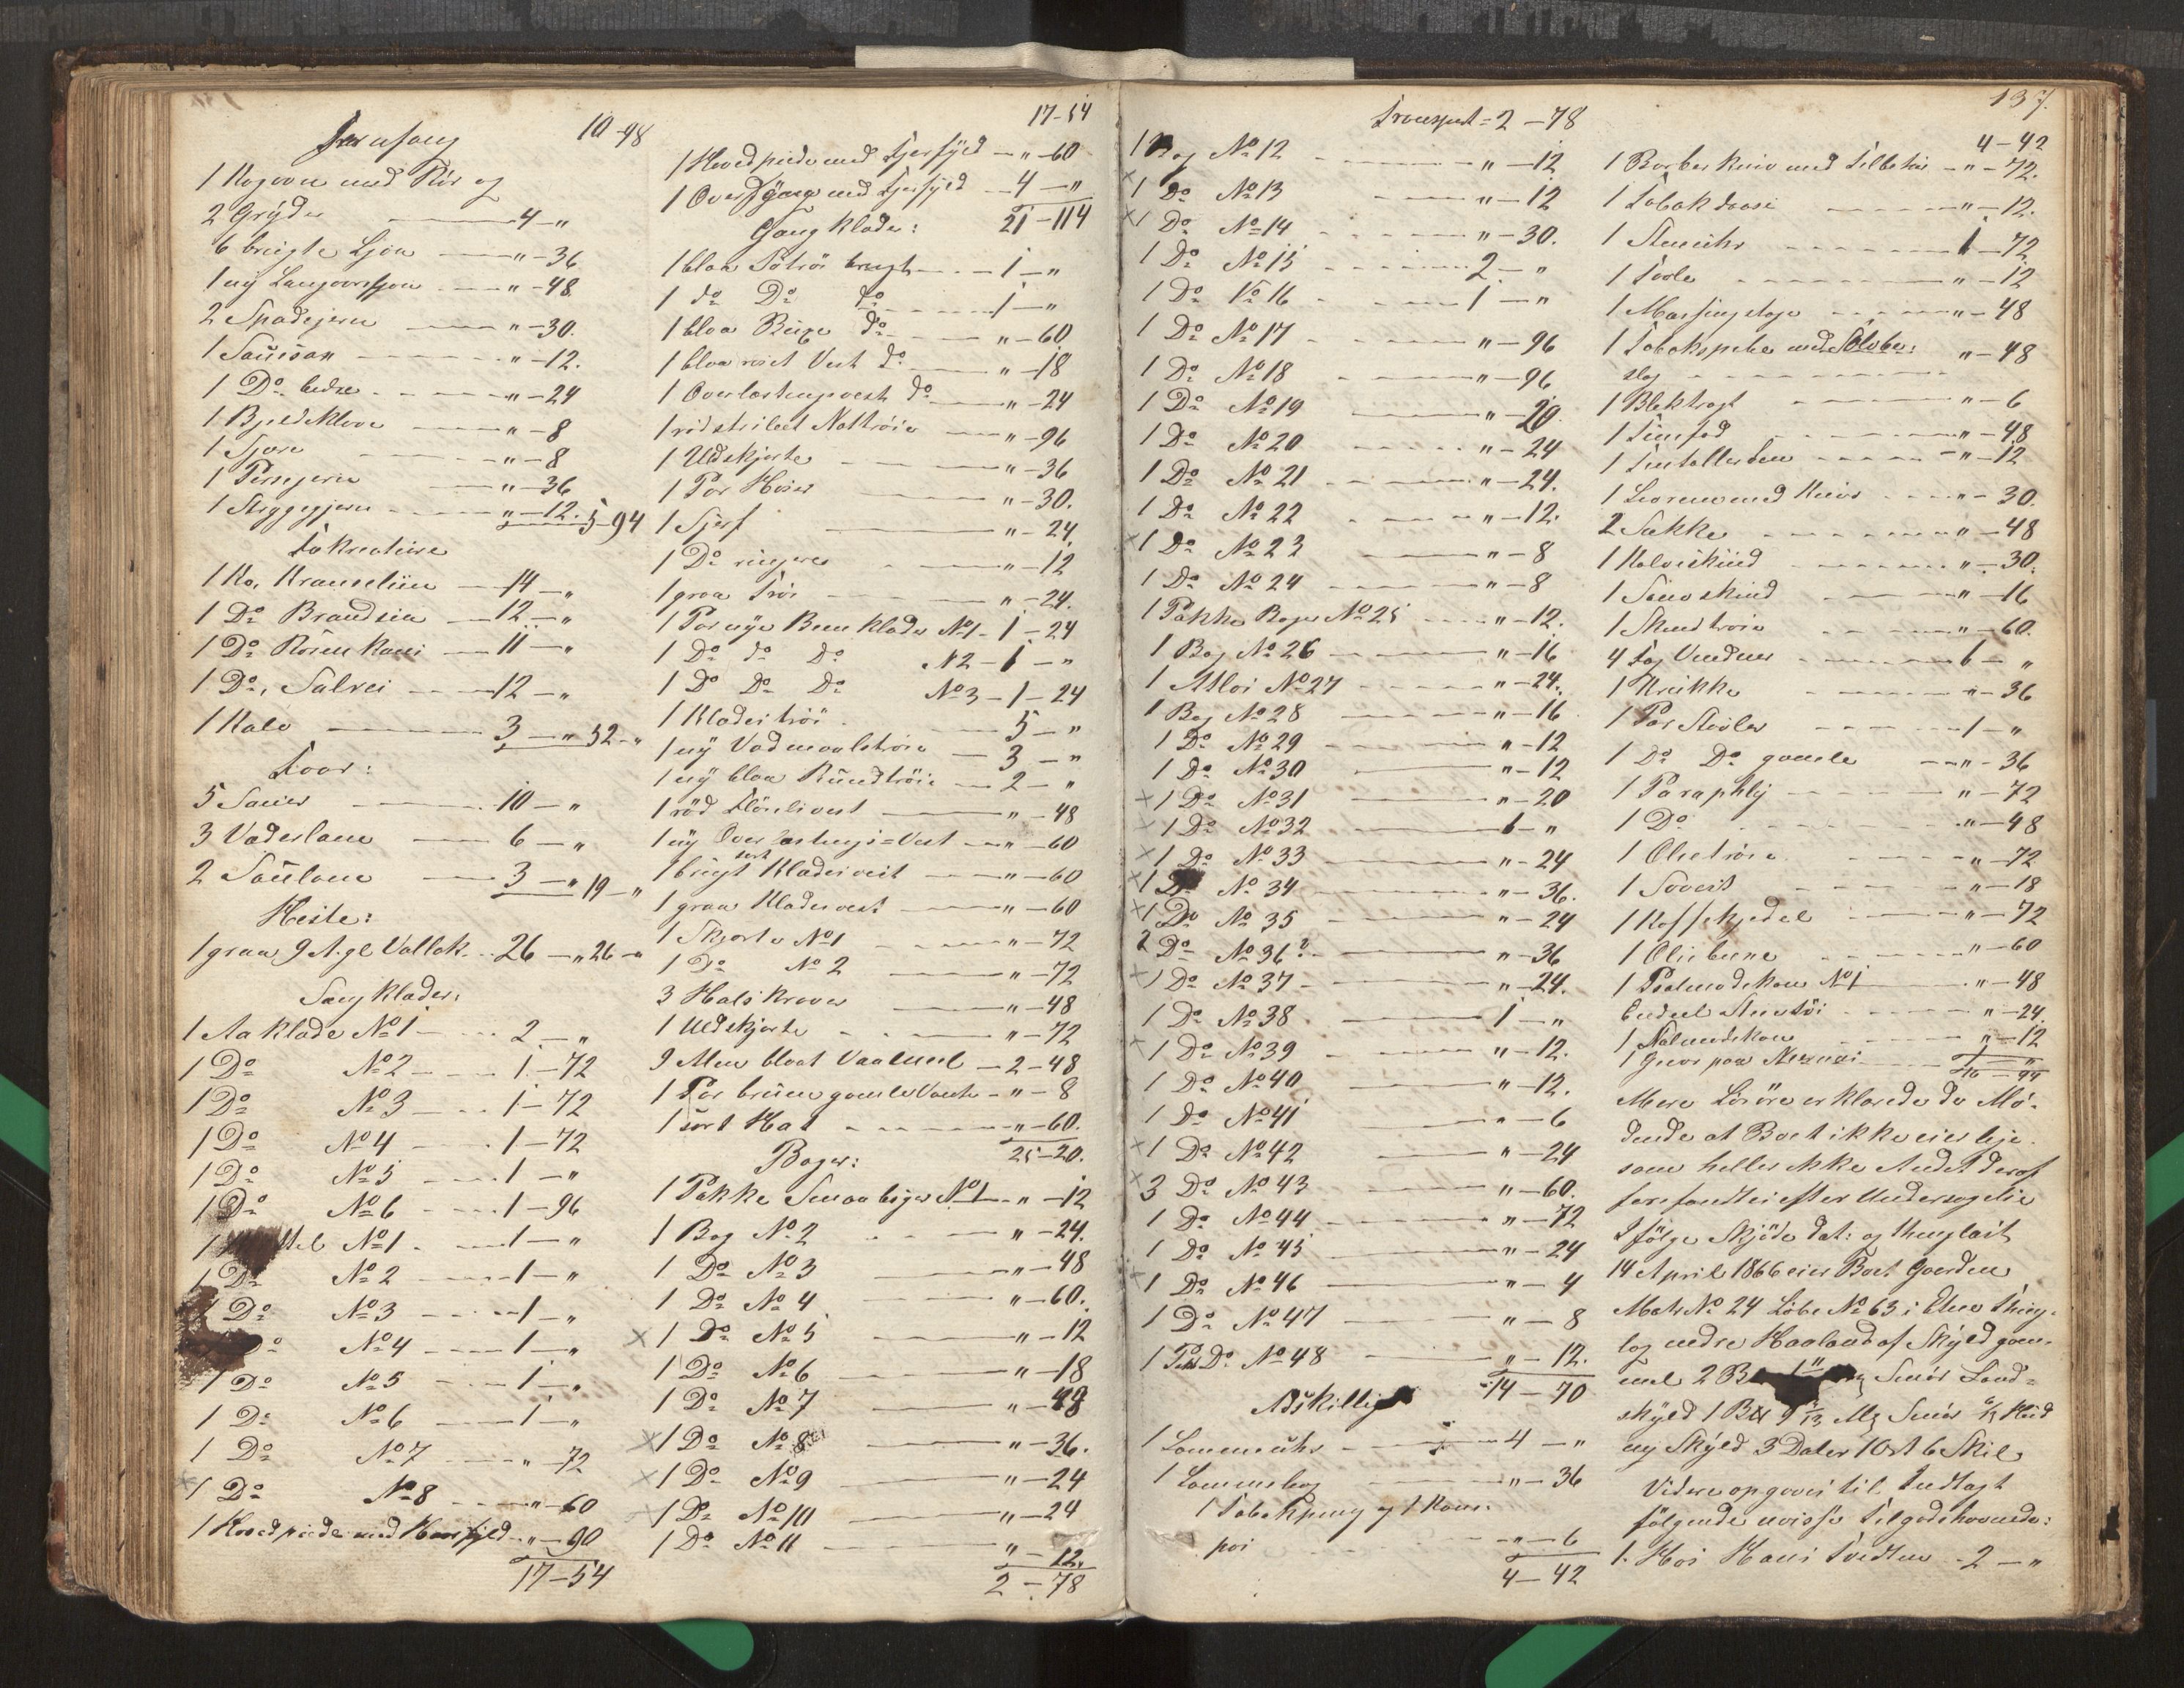 10-98
Jernfang
1 Kogovn med Rör og
2 Gryder 4 - "
6 brugte Ljaa " - 36
1 ny Langorvsljaa " - 48
2 Spadejern " - 30.
1 Sausax " - 12.
1 Do bedre " - 24
1 Bjeldklove " - 8
1 " - 8
1 Persejern " - 36
1 Skyggejern " - 12. 5-94
Fækreature
1 Ko, Kranseliin 14 - "
1 Do Brandsiu 12 - "
1 Do Rosenkani 11 - "
1 Do, Salvei 12 - "
1 Kalv 3 - " 52 - "
Foor:
5 Sauer 10 - "
3 Væderlam 6 - "
2 Saulam 3 - " 19 - "
Heste:
1 graa 9 A. gl Vallak 26 - " 26 - "
Sengklæder:
1 Aaklæde No 1 2 - "
1 Do No 2 1 - 72
1 Do No 3 1 - 72
1 Do No 4 1 - 72
1 Do No 5 1 - "
1 Do No 6 1 - 96
1 No 1 1 - "
1 Do No 2 1 - "
1 Do No 3 1 - "
Do No 4 1 - "
1 Do No 5 1 - "
1 Do No 6 1 - "
1 Do No 7 " - 72
1 Do No 8 " - 60
1 Hovedpude med " - 90
17-54
17-54
1 Hovedpude med Fjerfyld " - 60
1 Overseng med Fjerfyld 4 - "
21-114
Gangklæder:
1 blaa brugt 1 - "
1 do Do do 1 - "
1 blaa Buxe do " - 60
1 blaa Vest do " - 18
1 Overlastings vest do " - 24
1 rödstribet Nattröie " - 96
1 Uldskjorte " - 36
1 Par Hoser " - 30.
1 Sjerf " - 24
1 Do ringere " - 12
1 graa Tröi " - 24.
1 Par nye Benklæder No 1 - 1 - 24
1 Do do Do N 2 - 1 - "
1 Do Do Do No 3 - 1 - 24
1 Klædestrøi 5 - "
1 ny Vadmaalströie 3 - "
1 ny blaa Rundtröie 2 - "
1 röd vest " - 48
1 ny Overlastings=Vest " - 60
1 brugt sort Klædesvest " - 60
1 graa Klædesvest " - 60
1 Skjorte No 1 " - 72
1 Do No 2 " - 72
3 Halskraver " - 48
1 Uldskjorte " - 72
9 Alen blaat 2 - 48
1 Par brune gamle Vanter " - 8
1 sort Hat " - 60.
25-20.
Bøger:
1 Pakke Smaabøger No 1 " - 12
1 Bog No 2 " - 24.
1 Do No 3 " - 48
1 Do No 4 " - 60.
X 1 Do No 5 " - 12
1 Do No 6 " - 18
1 Do No 7 " - 48
X 1 Do No 8 " - 36.
X 1 Do No 9 " - 24
X 1 Do No 10 " - 24
1 Do No 11 " - 12.
2 - 78
Transport = 2 - 78
1 Bog No 12 " - 12
X 1 Do No 13 " - 12
X 1 Do No 14 " - 30.
1 Do No 15 2 - "
1 Do No 16 1 - "
1 Do No 17 " - 96
1 Do No 18 " - 96
1 Do No 19 " - 20
1 Do No 20 " - 24
1 Do No 21 " - 24.
1 Do No 22 " - 12.
X 1 Do No 23 " - 8
1 Do No 24 " - 8
1 Pakke Bøger No 25 " - 12.
1 Bog No 26 " - 16
1 Atlas No 27 " - 24.
1 Bog No 28 " - 16
1 Do No 29 " - 12
1 Do No 30 " - 12
X 1 Do No 31 " - 20
X 1 Do No 32 1 - "
X 1 Do No 33 " - 24
X 1 Do No 34 " - 36.
X 1 Do No 35 " - 24
2 Do No 36 " - 36
X 1 Do No 37 " - 24.
1 Do No 38 1 - "
X 1 Do No 39 " - 12.
1 Do No 40 " - 12.
1 Do No 41 " - 6
X 1 Do No 42 " - 24
X 3 Do No 43 " - 60.
1 Do No 44 " - 72
1 Do No 45 " - 24
X 1 Do No 46 " - 4
1 Do No 47 " - 8
1 Do No 48 " - 12.
14 - 70
Adskilligt
1 Lommeuhr 4 - "
1 Lommebog " - 36
1 Tobakspung og 1
" - 6
4 - 42
137.
4 - 42
1 Barberkniv med Tilbehør " - 72.
1 Tobakdaase " - 12.
1 Stueuhr 1 - 72
1 " - 12
1 Messingstage " - 48
1 Tobakspibe med Sølvbe:
slag " - 48
1 Blektragt " - 6
1 Tinfad " - 48
1 Tintallerken " - 12
1 med Kniv " - 30.
2 Sække " - 48
1 Kalveskind " - 30.
1 Saueskind " - 16
1 Skindtröie " - 60.
4 Fag Vinduer 6 - "
1 Krukke " - 36
1 Par Støvler 1 - "
1 Do Do gamle " - 36
1 Paraply " - 72
1 Do " - 48
1 Olietröie " - 72
1 " - 18
1 Kaffekjedel " - 72
1 Oliebuxe " - 60
1 Psalmodikon No 1 " - 48
Endeel " - 24.
1 Salmodikon " - 12
1
Mere Løsøre erklærede de Mø-
dende at Boet ikke eier lige-
som heller ikke Andet deraf
forefandtes efter Undersøgelse
Ifølge Skjöde dat: og thinglæst
14 April 1866 eier Boet Gaarden
Matr No 24 Løbe No 63 i Etne Thing-
lag nedre Haaland af Skyld gam-
mel 2 Smør Land=
skyld 1 Smör Hud
ny Skyld 3 Daler 1 Ort 6 Skil.
Videre opgaves til Indtægt
følgende uvisse Tilgodehavende:
1. Hos Hans Tvedten 2 - "